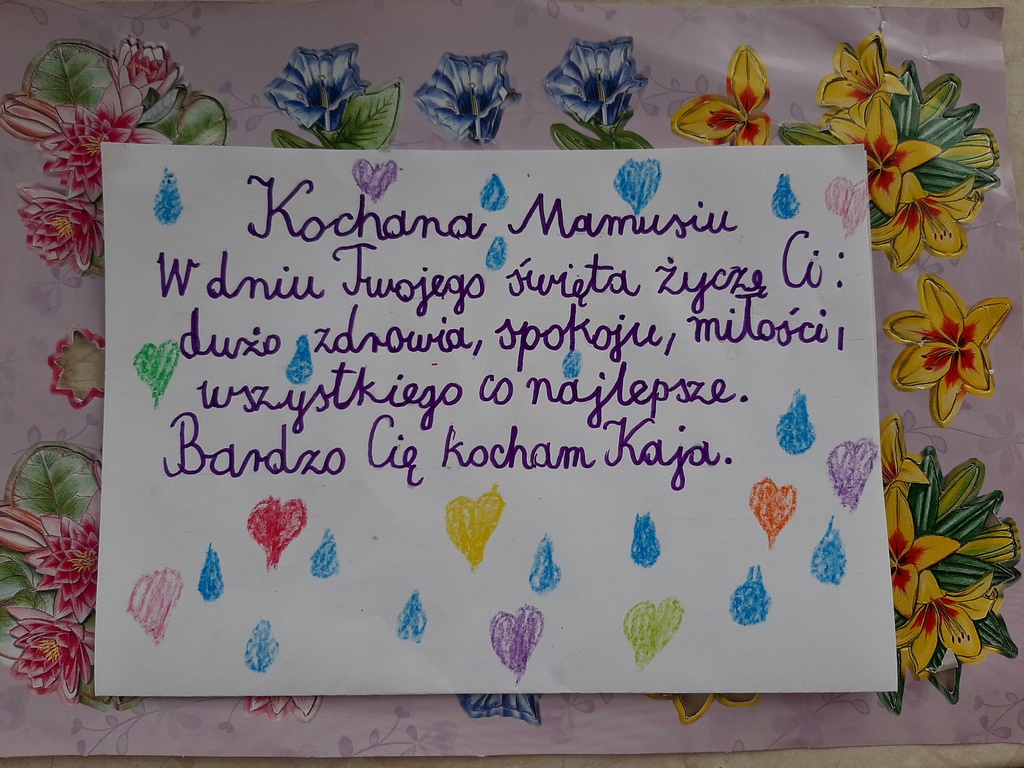 Kochana Mamusiu
W dniu Twojego święta życzę Ci :
dużo zdrowia, spokoju, miłości,
wszystkiego co najlepsze.
Bardzo Cię kocham Kaja.